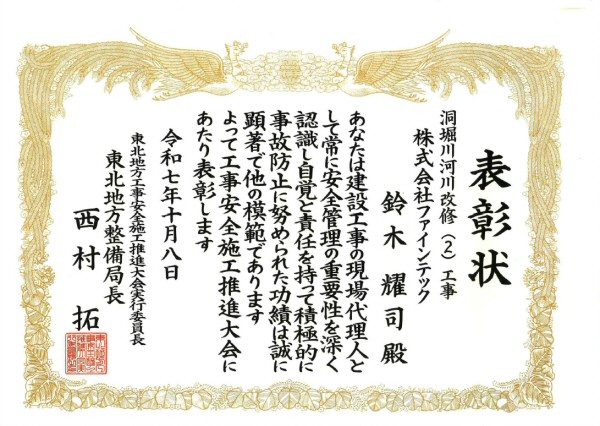 表彰状
洞堀川河川改修(2)工事
株式会社ファインテック
鈴木耀司殿
あなたは建設工事の現場代理人と
して常に安全管理の重要性を深く
認識し自覚と責任を持って積極的に
事故防止に努められた功績は誠に
顕著で他の模範であります
よって工事安全施工推進大会に
あたり表彰します
令和七年十月八日
東北地方工事安全施工推進大会実行委員長
東北地方整備局長
西村拓